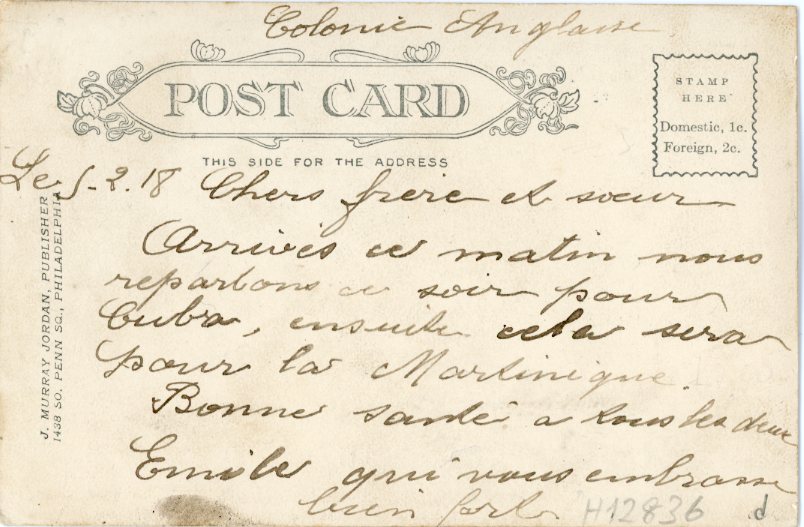 Colonie Anglaise
POST CARD
STAMP
HERE
Domestic, 1c.
Foreign, 2c.
THIS SIDE FOR THE ADDRESS
Le 5-2.18 Chers frère et sœur
Arrivés ce matin nous
repartons ce soir pour
Cuba, ensuite cela sera
pour la Martinique.
Bonne santé a tous les deux
Emile qui vous embrasse
bien fort
H12836 d
J. MURRAY JORDAN, PUBLISHER
1438 SO. PENN SQ., PHILADELPHIA